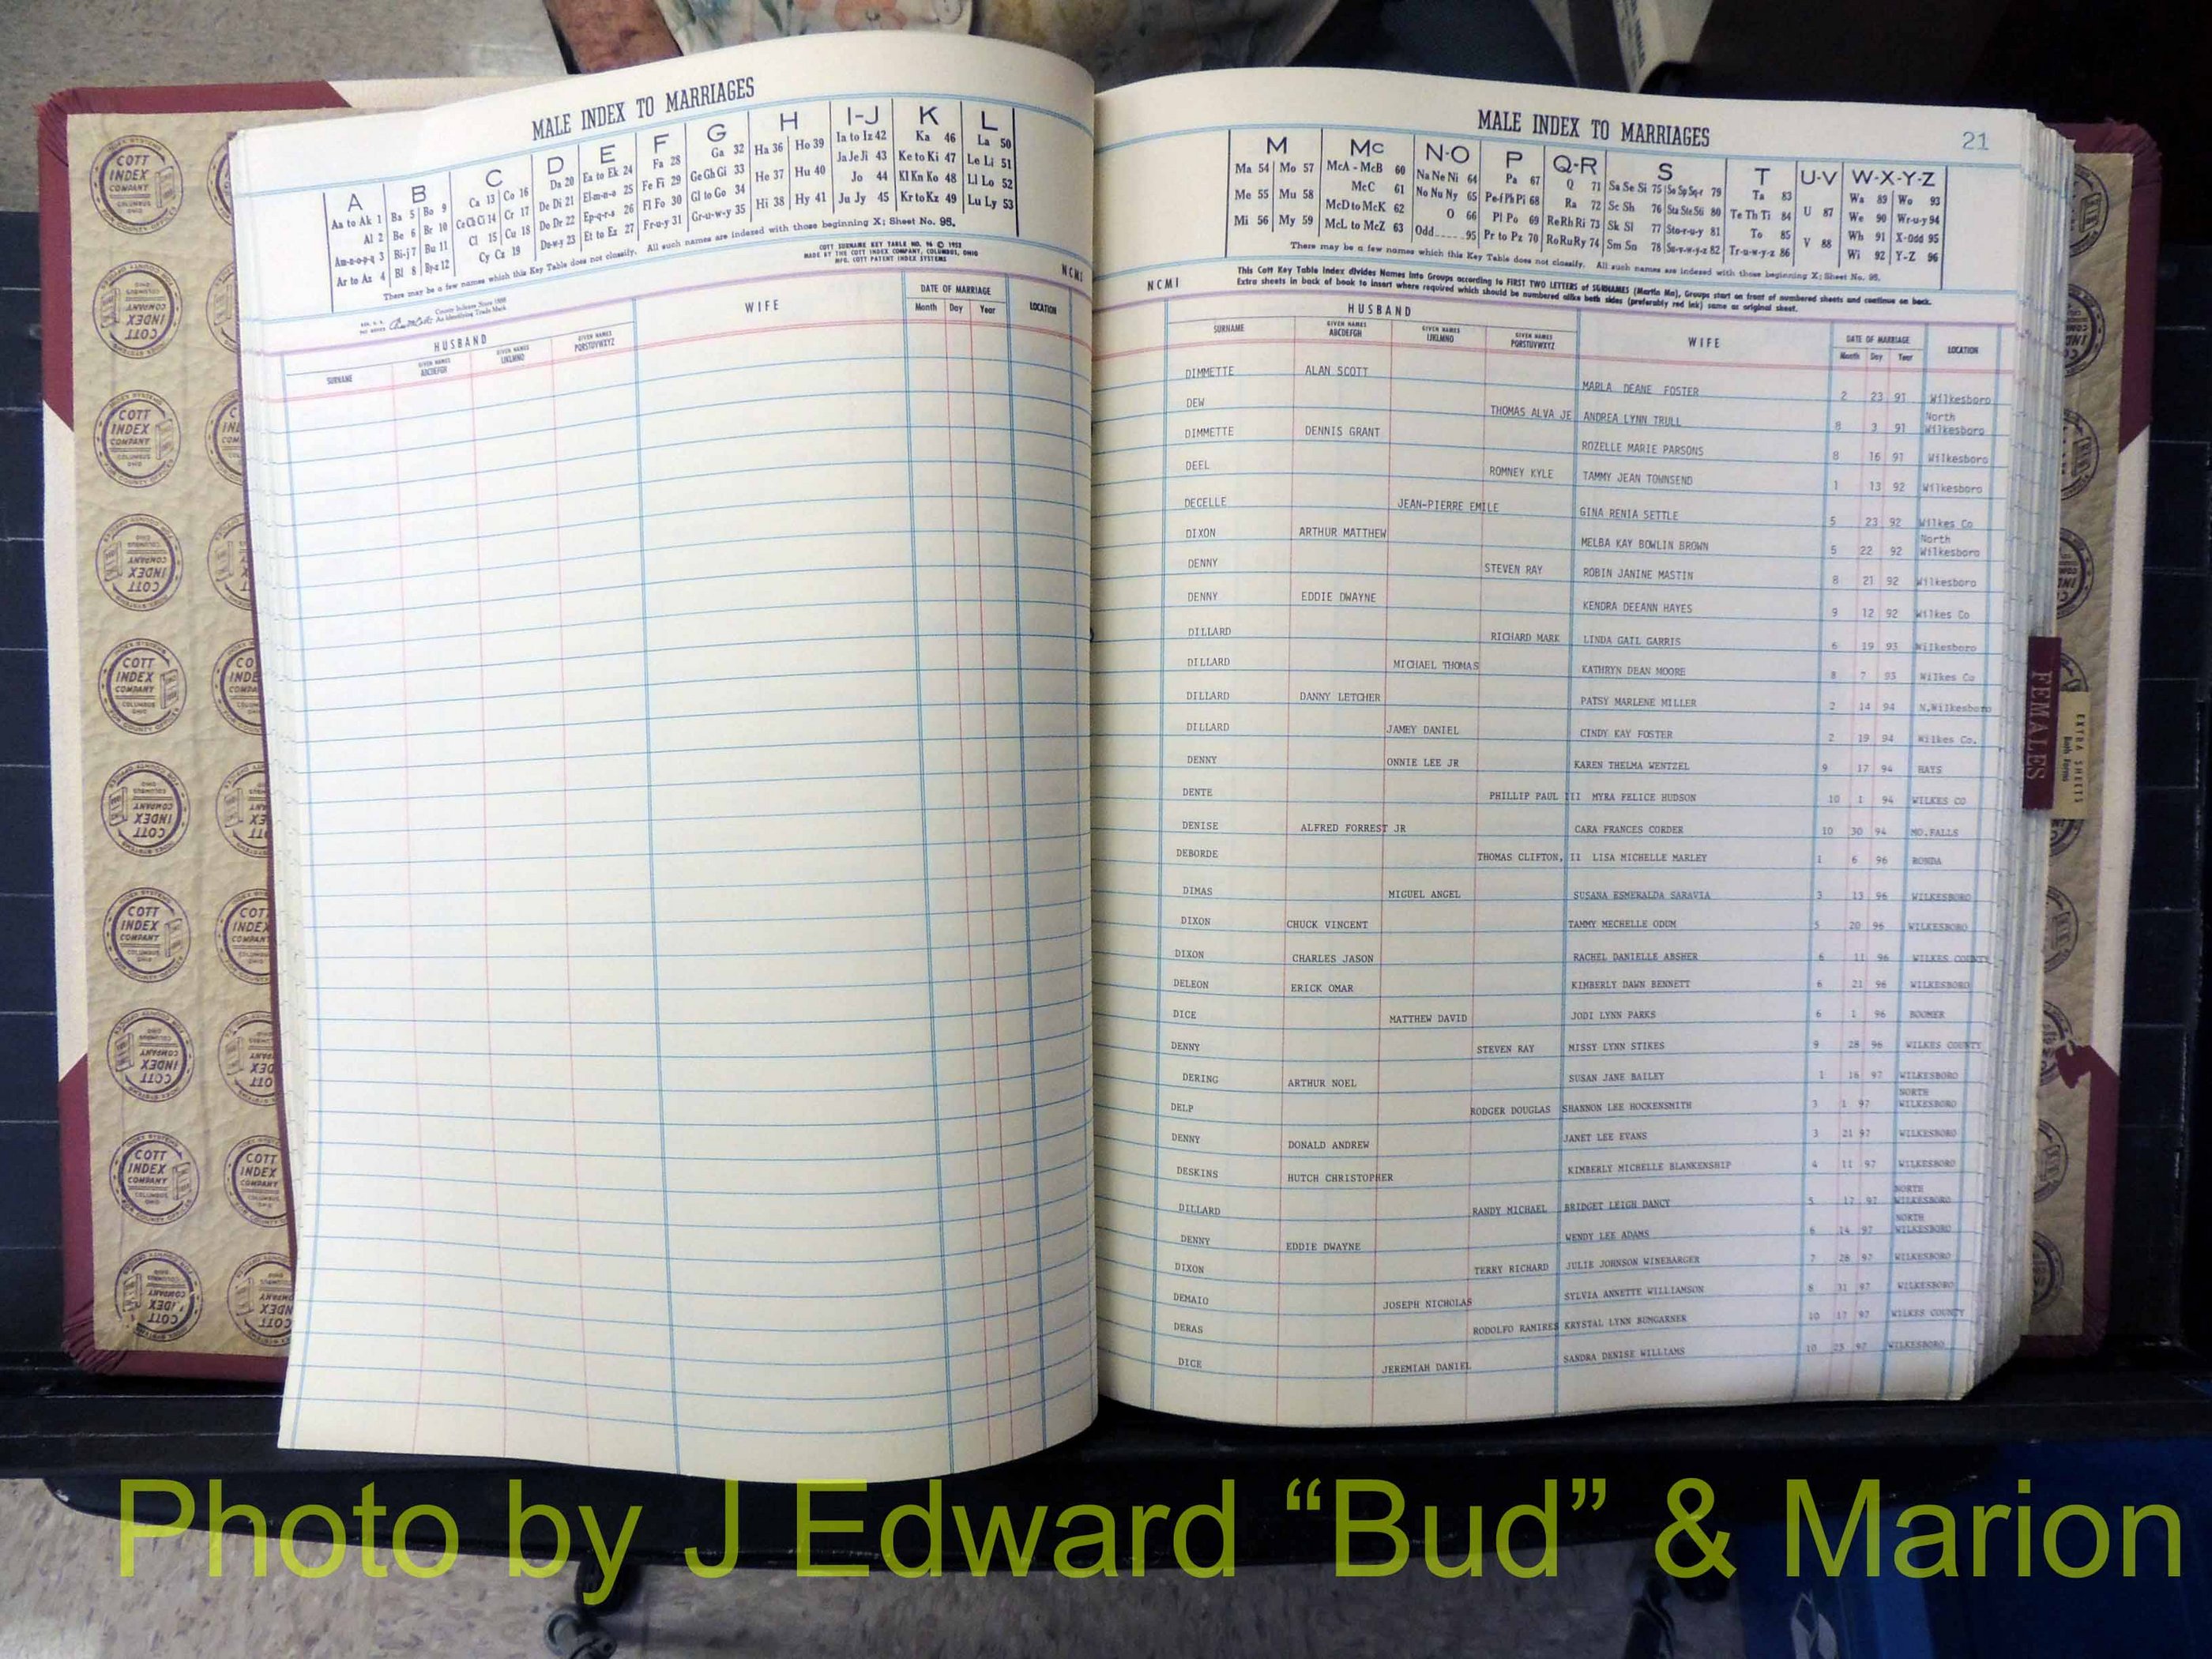 MALE INDEX TO MARRIAGES
A B C D E F G H I-J K L
Aa to Ak 1 Ba 5 Bo 9 Ca 13 Co 16 Da 20 Ea to Ek 24 Fa 28 Ga 32 Ha 36 Ho 39 Ia to Iz 42 Ka 46 La 50
Al 2 Be 6 Br 10 Ce Ch Ci 14 Cr 17 De Di 21 El-m-n-o 25 Fe Fi 29 Ge Gh Gi 33 He 37 Hu 40 Ja Je Ji 43 Ke to Ki 47 Le Li 51
Am-n-o-p-q 3 Bi-j 7 Bu 11 Cl 15 Cu 18 Do Dr 22 Ep-q-r-s 26 Fl Fo 30 Gl to Go 34 Hi 38 Hy 41 Jo 44 Kl Kn Ko 48 Ll Lo 52
Ar to Az 4 Bl 8 By-z 12 Cy Cz 19 Du-w-y 23 Et to Ez 27 Fr-u-y 31 Gr-u-w-y 35 Ju Jy 45 Kr to Kz 49 Lu Ly 53
There may be a few names which this Key Table does not classify. All such names are indexed with those beginning X; Sheet No. 95.
COTT SURNAME KEY TABLE NO. 96 © 1952
MADE BY THE COTT INDEX COMPANY, COLUMBUS, OHIO
MFG. COTT PATENT INDEX SYSTEMS
County Indexes Since 1888
An Identifying Trade Mark
NCMI
HUSBAND WIFE DATE OF MARRIAGE LOCATION
SURNAME GIVEN NAMES ABCDEFGH GIVEN NAMES IJKLMNO GIVEN NAMES PQRSTUVWXYZ Month Day Year
MALE INDEX TO MARRIAGES 21
M Mc N-O P Q-R S T U-V W-X-Y-Z
Ma 54 Mo 57 McA - McB 60 Na Ne Ni 64 Pa 67 Q 71 Sa Se Si 75 So Sp Sq-r 79 Ta 83 Wa 89 Wo 93
Me 55 Mu 58 McC 61 No Nu Ny 65 Pe-f Ph Pi 68 Ra 72 Sc Sh 76 Sta Ste Sti 80 Te Th Ti 84 U 87 We 90 Wr-u-y 94
Mi 56 My 59 McD to McK 62 O 66 Pl Po 69 Re Rh Ri 73 Sk Sl 77 Sto-r-u-y 81 To 85 V 88 Wh 91 X-Odd 95
McL to McZ 63 Odd 95 Pr to Pz 70 Ro Ru Ry 74 Sm Sn 78 Su-v-w-y-z 82 Tr-u-w-y-z 86 Wi 92 Y-Z 96
There may be a few names which this Key Table does not classify. All such names are indexed with those beginning X; Sheet No. 95.
This Cott Key Table Index divides Names into Groups according to FIRST TWO LETTERS of SURNAMES (Martin Ma), Groups start on front of numbered sheets and continue on back.
Extra sheets in back of book to insert where required which should be numbered alike both sides (preferably red ink) same as original sheet.
NCMI
HUSBAND WIFE DATE OF MARRIAGE LOCATION
SURNAME GIVEN NAMES ABCDEFGH GIVEN NAMES IJKLMNO GIVEN NAMES PQRSTUVWXYZ Month Day Year
DIMMETTE ALAN SCOTT MARLA DEANE FOSTER 2 23 91 Wilkesboro
DEW THOMAS ALVA JE ANDREA LYNN TRULL 8 3 91 North Wilkesboro
DIMMETTE DENNIS GRANT ROZELLE MARIE PARSONS 8 16 91 Wilkesboro
DEEL ROMNEY KYLE TAMMY JEAN TOWNSEND 1 13 92 Wilkesboro
DECELLE JEAN-PIERRE EMILE GINA RENIA SETTLE 5 23 92 Wilkes Co
DIXON ARTHUR MATTHEW MELBA KAY BOWLIN BROWN 5 22 92 North Wilkesboro
DENNY STEVEN RAY ROBIN JANINE MASTIN 8 21 92 Wilkesboro
DENNY EDDIE DWAYNE KENDRA DEEANN HAYES 9 12 92 Wilkes Co
DILLARD RICHARD MARK LINDA GAIL GARRIS 6 19 93 Wilkesboro
DILLARD MICHAEL THOMAS KATHRYN DEAN MOORE 8 7 93 Wilkes Co
DILLARD DANNY LETCHER PATSY MARLENE MILLER 2 14 94 N.Wilkesboro
DILLARD JAMEY DANIEL CINDY KAY FOSTER 2 19 94 Wilkes Co.
DENNY ONNIE LEE JR KAREN THELMA WENTZEL 9 17 94 HAYS
DENTE PHILLIP PAUL III MYRA FELICE HUDSON 10 1 94 WILKES CO
DENISE ALFRED FORREST JR CARA FRANCES CORDER 10 30 94 MO.FALLS
DEBORDE THOMAS CLIFTON, II LISA MICHELLE MARLEY 1 6 96 RONDA
DIMAS MIGUEL ANGEL SUSANA ESMERALDA SARAVIA 3 13 96 WILKESBORO
DIXON CHUCK VINCENT TAMMY MECHELLE ODUM 5 20 96 WILKESBORO
DIXON CHARLES JASON RACHEL DANIELLE ABSHER 6 11 96 WILKES COUNTY
DELEON ERICK OMAR KIMBERLY DAWN BENNETT 6 21 96 WILKESBORO
DICE MATTHEW DAVID JODI LYNN PARKS 6 1 96 BOOMER
DENNY STEVEN RAY MISSY LYNN STIKES 9 28 96 WILKES COUNTY
DERING ARTHUR NOEL SUSAN JANE BAILEY 1 16 97 WILKESBORO
DELP RODGER DOUGLAS SHANNON LEE HOCKENSMITH 3 1 97 NORTH WILKESBORO
DENNY DONALD ANDREW JANET LEE EVANS 3 21 97 WILKESBORO
DESKINS HUTCH CHRISTOPHER KIMBERLY MICHELLE BLANKENSHIP 4 11 97 WILKESBORO
DILLARD RANDY MICHAEL BRIDGET LEIGH DANCY 5 17 97 NORTH WILKESBORO
DENNY EDDIE DWAYNE WENDY LEE ADAMS 6 14 97 NORTH WILKESBORO
DIXON TERRY RICHARD JULIE JOHNSON WINEBARGER 7 28 97 WILKESBORO
DEMAIO JOSEPH NICHOLAS SYLVIA ANNETTE WILLIAMSON 8 31 97 WILKESBORO
DERAS RODOLFO RAMIRES KRYSTAL LYNN BUMGARNER 10 17 97 WILKES COUNTY
DICE JEREMIAH DANIEL SANDRA DENISE WILLIAMS 10 25 97 WILKESBORO
FEMALES
EXTRA SHEETS
Both Forms
COTT INDEX COMPANY
COLUMBUS OHIO
Photo by J Edward “Bud” & Marion